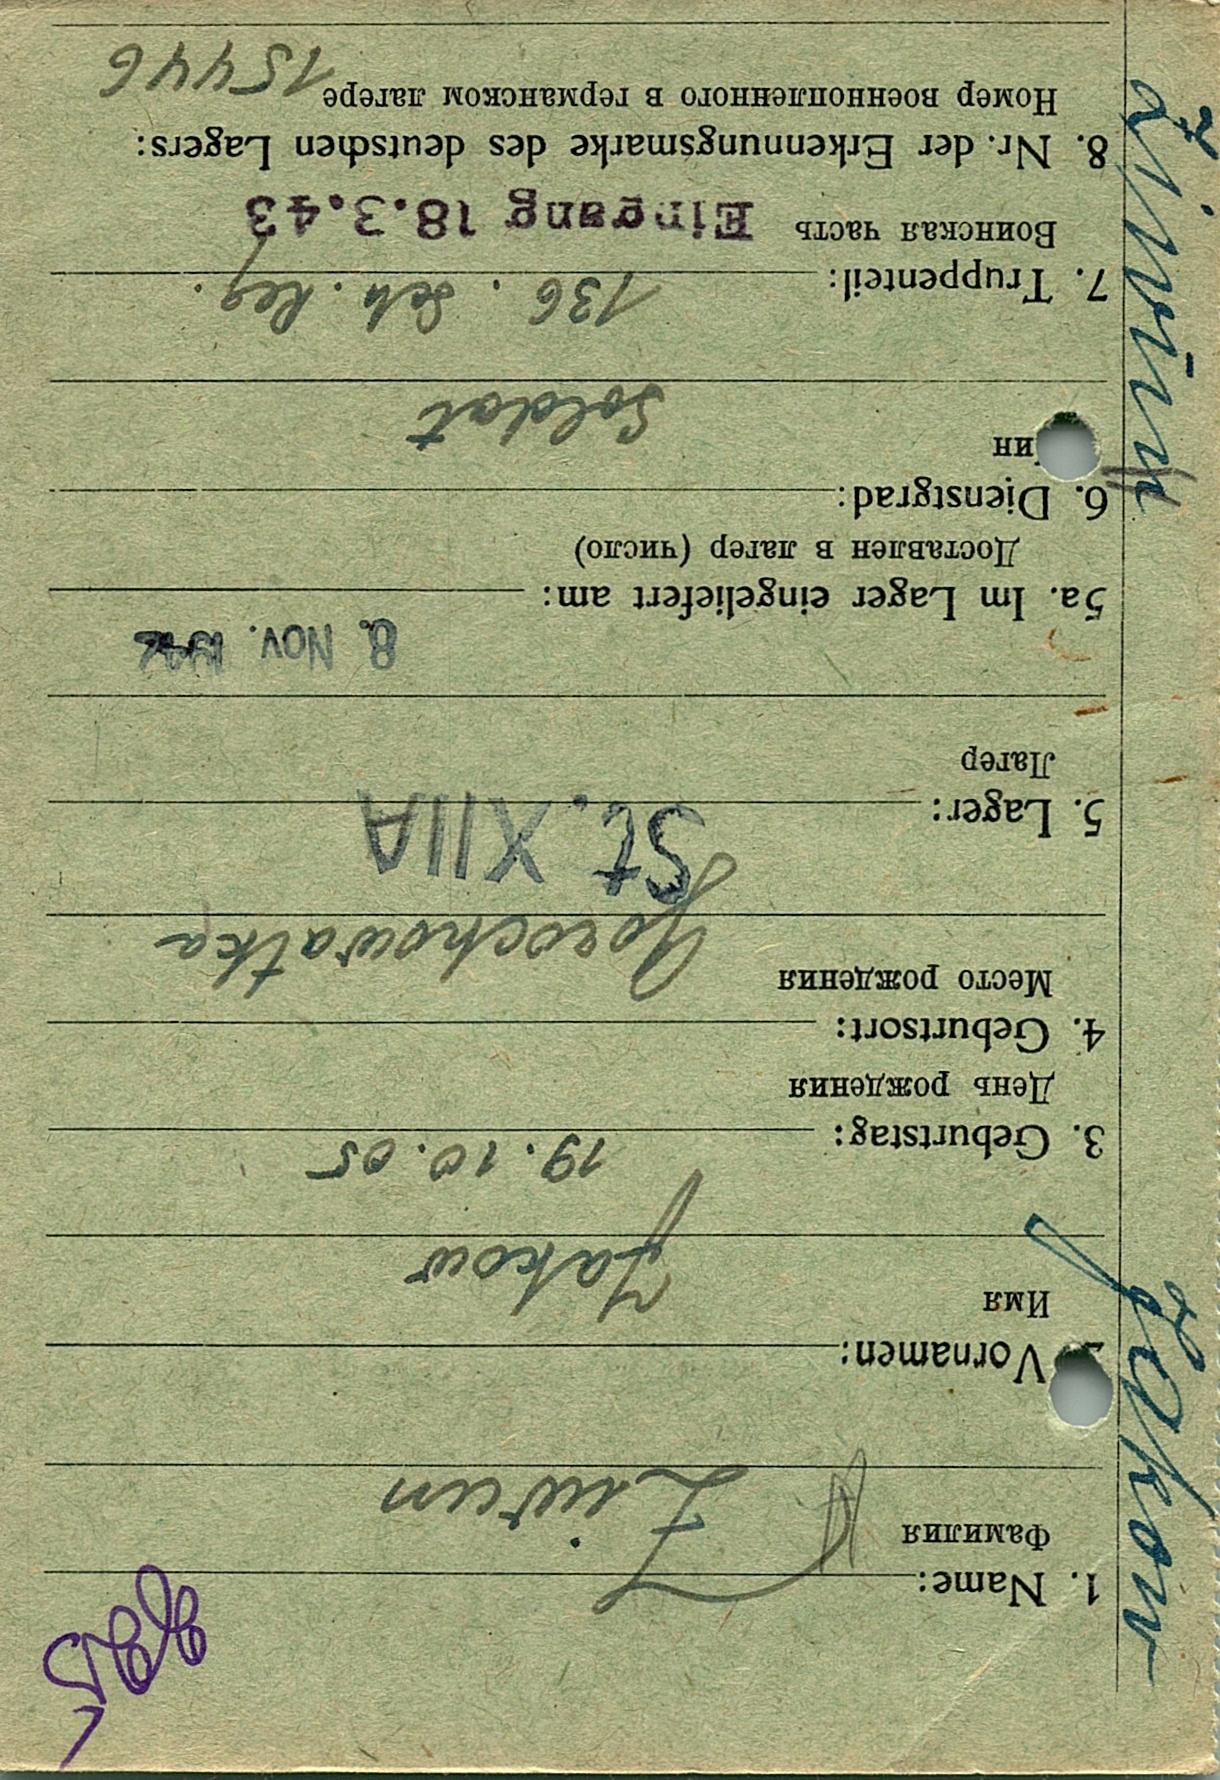 1. Name:
Фамилия
Ziwun
Vornamen:
Имя
Jakow
3. Geburtstag:
День рождения
19.10.05
4. Geburtsort:
Место рождения
Gorochowatka
5. Lager:
Лагер
St. XIIA
5a. Im Lager eingeliefert am:
Доставлен в лагер (число)
8. Nov. 1942
6. Dienstgrad:
ин
Soldat
7. Truppenteil:
Воинская часть
136. Sch. Reg.
Eingang 18.3.43
8. Nr. der Erkennungsmarke des deutschen Lagers:
Номер военнопленного в германском лагере
15446
Jakow